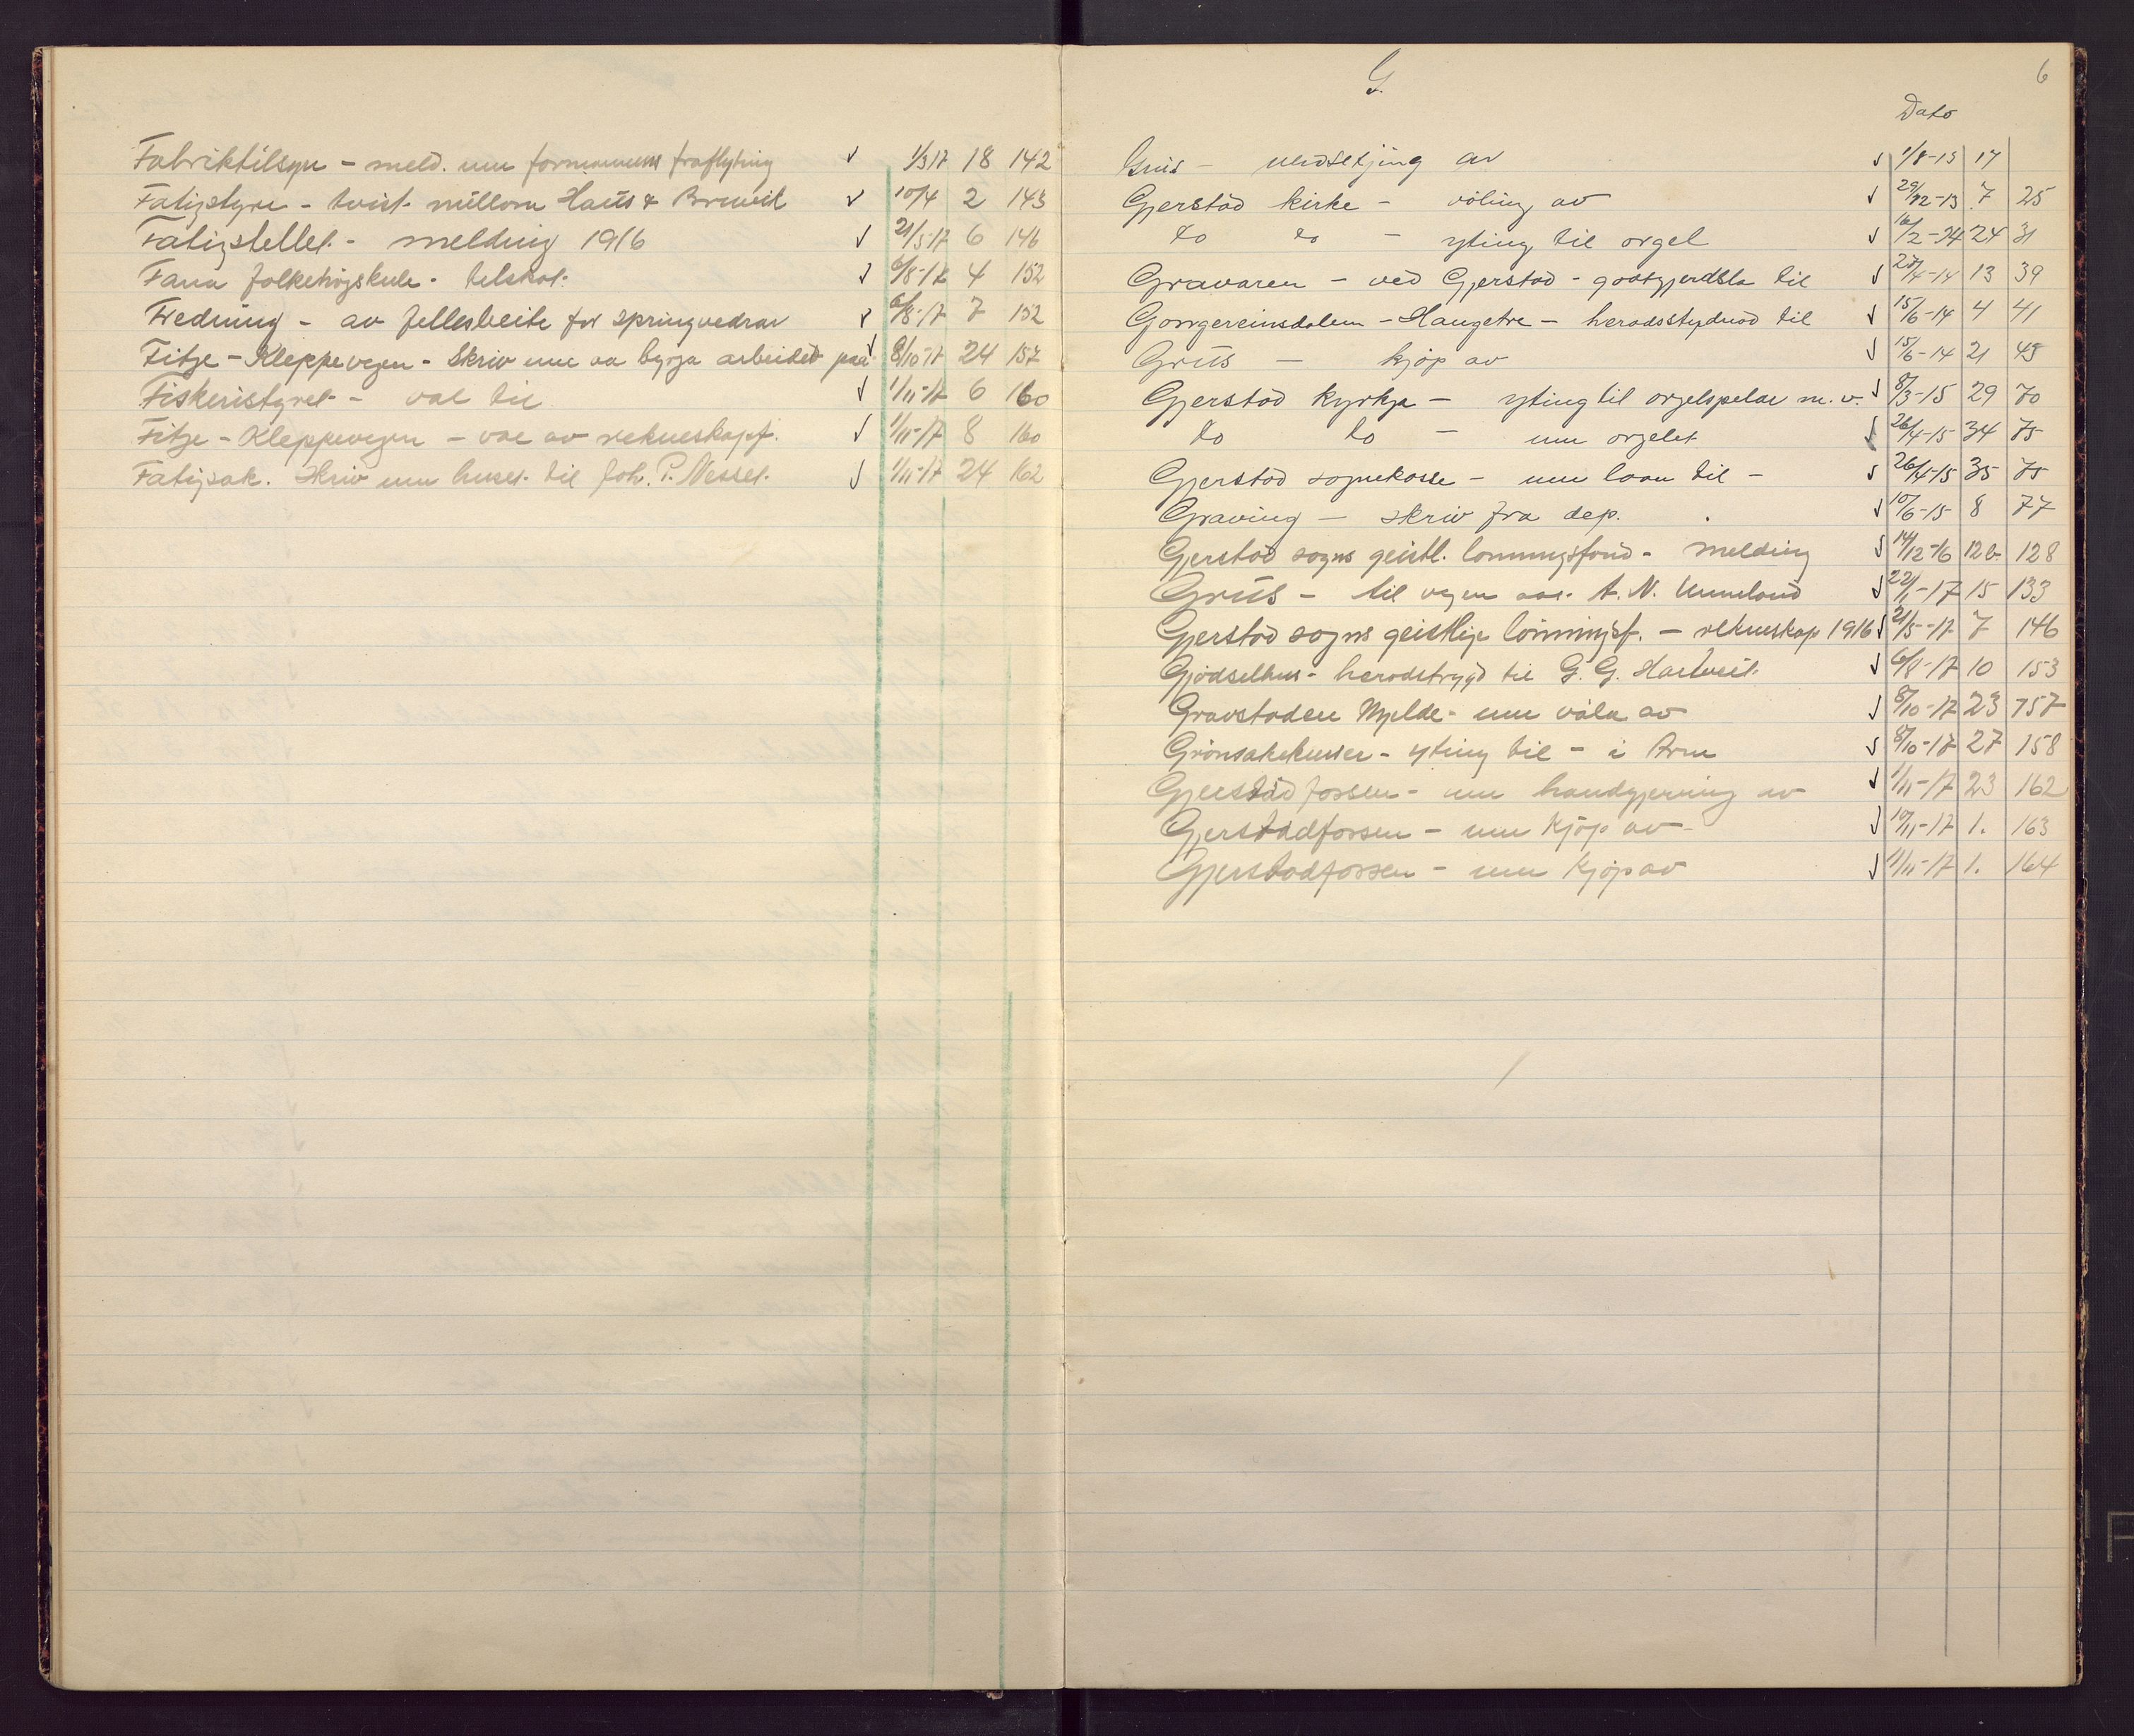 Fabriktilsyn - meld. um formannens fraflyting √ 1/3 17 18 142
Fatigstyre - tvist millom Haus & Bruvik √ 10/4 2 143
Fatigstellet - melding 1916 √ 21/5-17 6 146
Fana folkehøgskule - tilskot. √ 6/8-17 4 152
Fredning - av fellesbeite for springvedrar √ 6/8-17 7 152
Fitje - Kleppevegen - Skriv um aa byrja arbeidet paa √ 8/10-17 24 157
Fiskeristyret - val til √ 1/11-17 6 160
Fitje - Kleppevegen - val av rekneskapsf. √ 1/11-17 8 160
Fatigsak. Skriv um huset til Joh. P. Nesset. √ 1/11-17 24 162
G.
6
Dato
Grus - utdsetjing av √ 1/8-13 17
Gjerstad kirke - vøling av √ 29/12-13 7 25
do do - yting til orgel √ 16/2-34 24 31
Gravaren - ved Gjerstad - godtgjerdsla til √ 27/4-14 13 39
Gongereinsdalen - Haugetre - heradsstydnad til √ 15/6-14 4 41
Grus - kjøp av √ 15/6-14 21 45
Gjerstad kyrkja - yting til orgelspelar m.v. √ 8/3-15 29 70
do do - um orgelet √ 26/4-15 34 75
Gjerstad sognekasse - um laan til - √ 26/4-15 35 75
Graving - skriv fra dep. √ 10/6-15 8 77
Gjerstad sogns geistl. lønningsfond - melding √ 14/12-16 12 b 128
Grus - til vegen aat A. N. Unneland √ 22/1-17 15 133
Gjerstad sogns geistlige lønningsf. - rekneskap 1916 √ 21/5-17 7 146
Gjødselhus - heradstrygd til G. G. Hartveit. √ 6/8-17 10 153
Gravstaden Mjelde - um vøla av √ 8/10-17 23 157
Grønsakekurser - yting til - i Arna √ 8/10-17 27 158
Gjerstad fossen - um handgjering av √ 1/11-17 23 162
Gjerstadfossen - um Kjøp av - √ 10/11-17 1. 163
Gjerstadfossen - um Kjøp av √ 11/11-17 1. 164